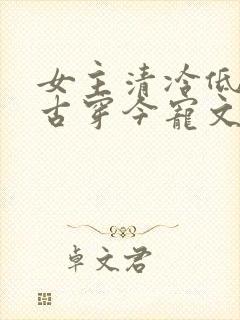 女主清冷低
古穿今宠文
卓文君